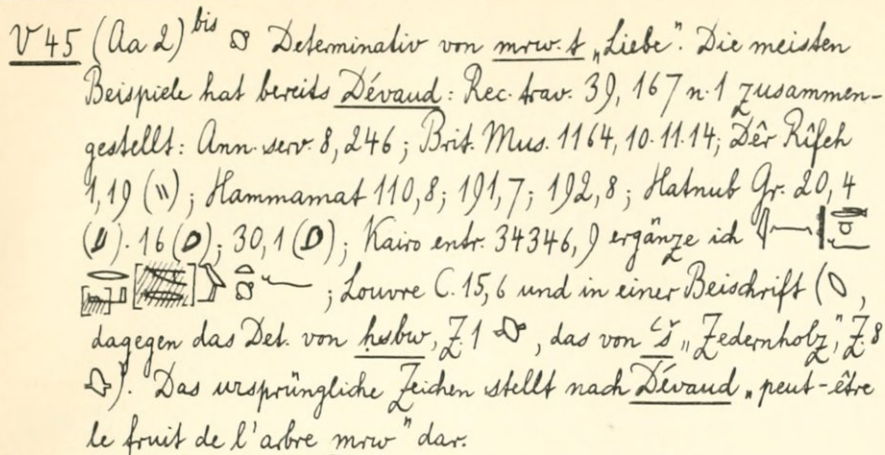 V 45 (Aa 2) bis Determinativ von mrw.t „Liebe“. Die meisten
Beispiele hat bereits Dévaud: Rec. trav. 39, 167 n. 1 zusammen-
gestellt: Ann. serv. 8, 246; Brit. Mus. 1164, 10. 11. 14; Dêr Rîfeh
1, 19 (\\); Hammamat 110, 8; 191, 7; 192, 8; Hatnub Gr. 20, 4
( ). 16 ( ); 30, 1 ( ); Kairo entr. 34346, 9 ergänze ich
; Louvre C. 15, 6 und in einer Beischrift ( ,
dagegen das Det. von ḥsbw, Z. 1 , das von ꜥš „Zedernholz“, Z. 8
). Das ursprüngliche Zeichen stellt nach Dévaud „peut-être
le fruit de l'arbre mrw“ dar.